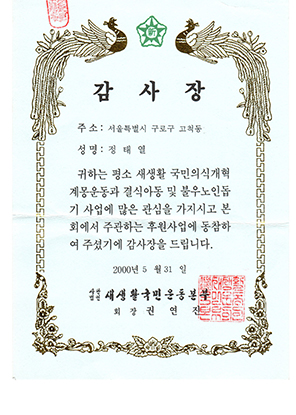 감사장
주소: 서울특별시 구로구 고척동
성명: 정태열
귀하는 평소 새생활 국민의식개혁
계몽운동과 결식아동 및 불우노인돕
기 사업에 많은 관심을 가지시고 본
회에서 주관하는 후원사업에 동참하
여 주셨기에 감사장을 드립니다.
2000년 5월 31일
사단법인 새생활국민운동본부
회장 권연진